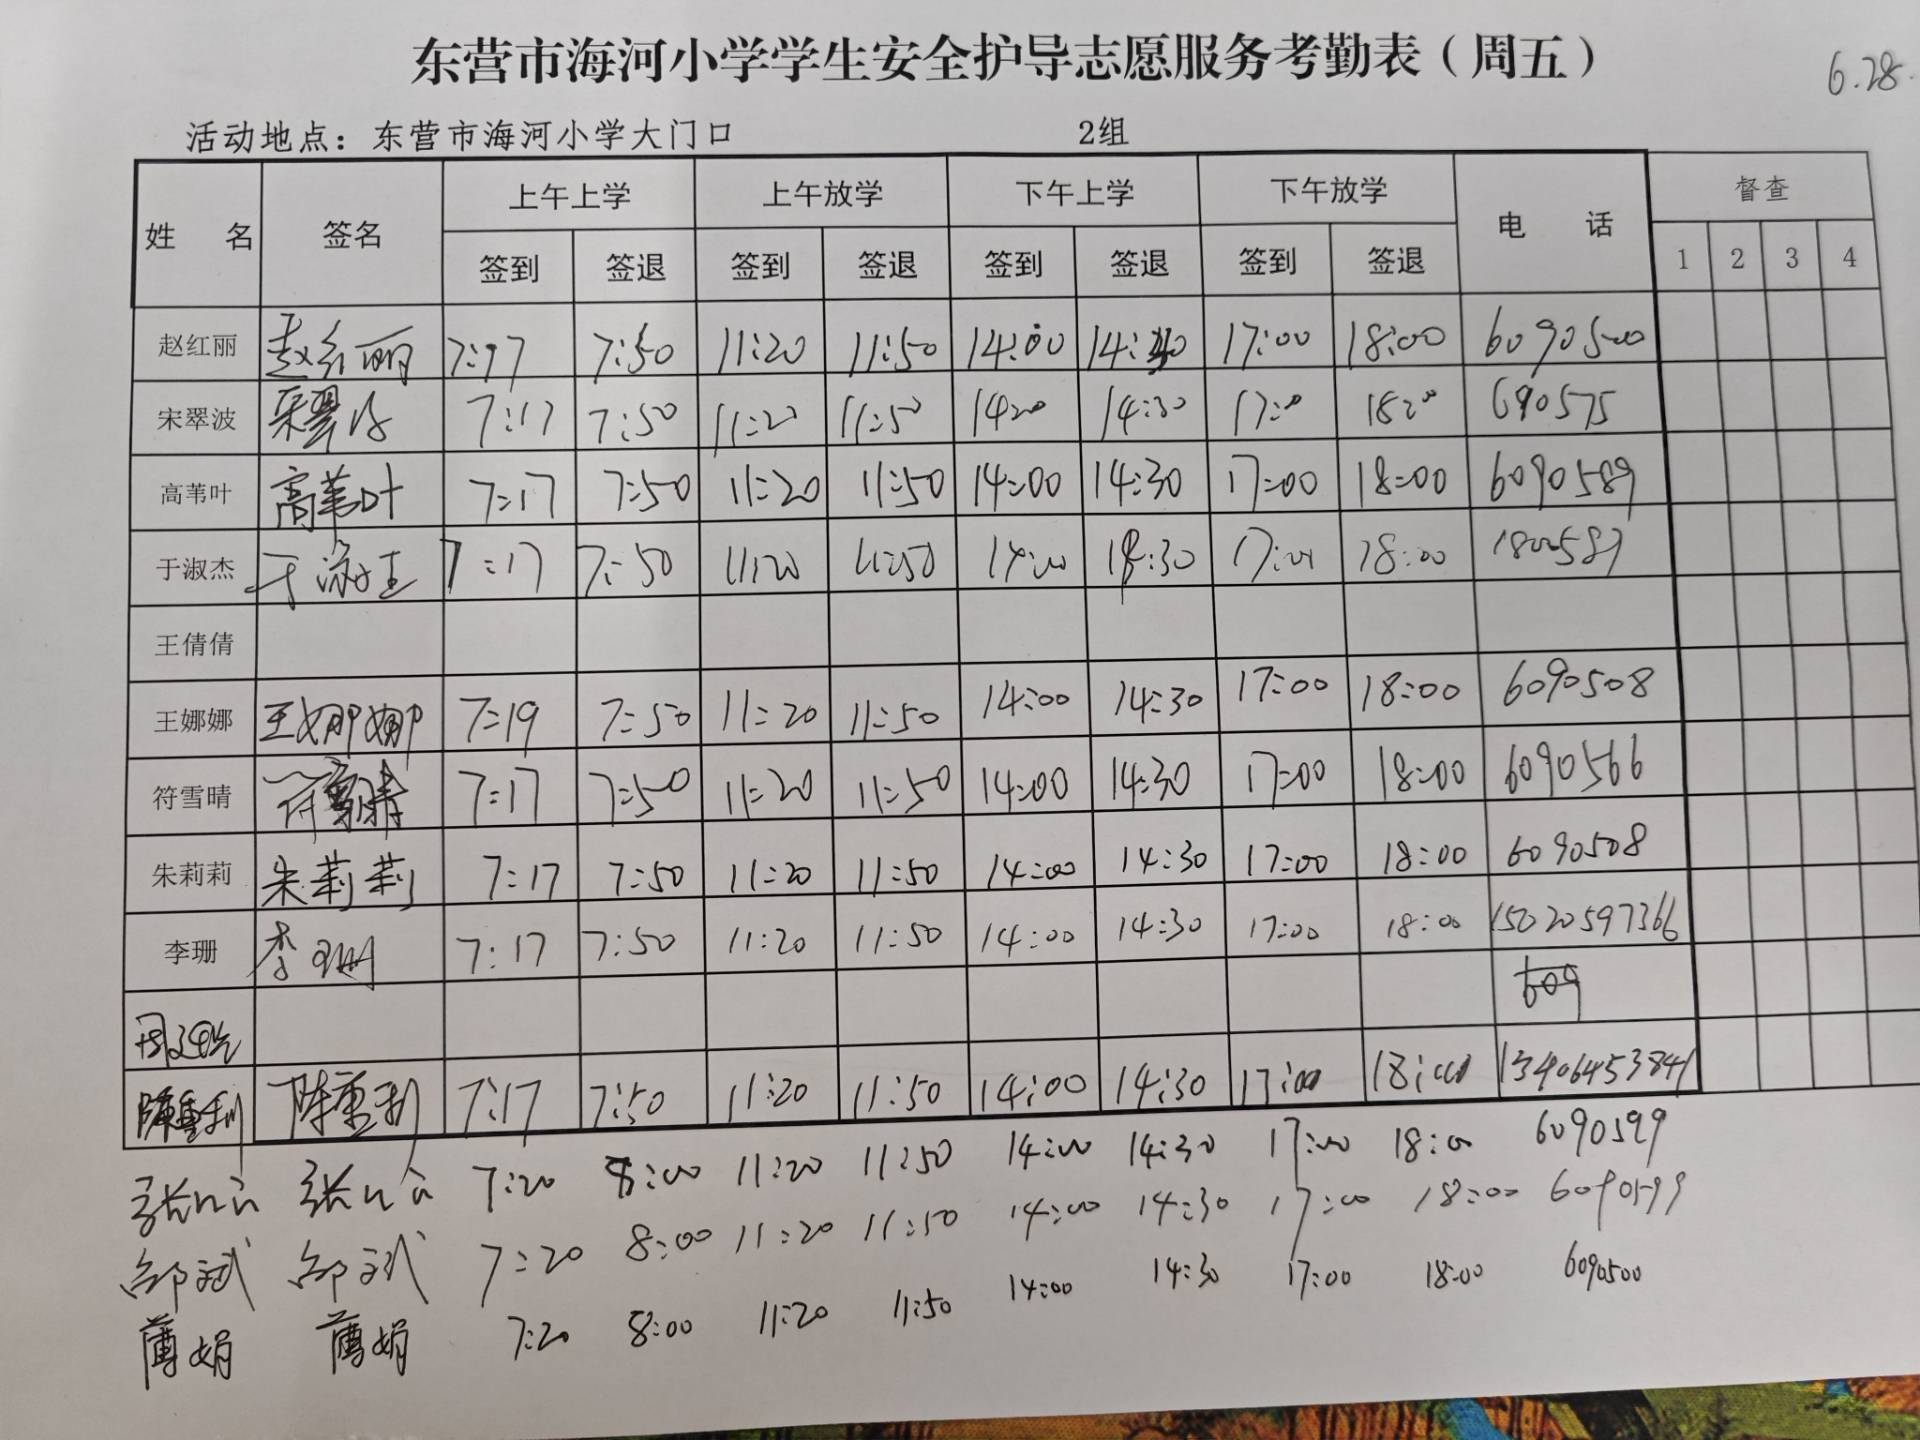 东营市海河小学学生安全护导志愿服务考勤表（周五）
6.28.
活动地点：东营市海河小学大门口 2组
姓 名 签名 上午上学 上午放学 下午上学 下午放学 电 话 督查
签到 签退 签到 签退 签到 签退 签到 签退 1 2 3 4
赵红丽 赵红丽 7:17 7:50 11:20 11:50 14:00 14:30 17:00 18:00 6090500
宋翠波 宋翠波 7:17 7:50 11:20 11:50 1420 14:30 17:0 18:00 690575
高苇叶 高苇叶 7:17 7:50 11:20 11:50 14:00 14:30 17:00 18:00 6090589
于淑杰 于淑杰 7:17 7:50 11:20 11:50 14:00 14:30 17:00 18:00
王倩倩
王娜娜 王娜娜 7:19 7:50 11:20 11:50 14:00 14:30 17:00 18:00 6090508
符雪晴 符雪晴 7:17 7:50 11:20 11:50 14:00 14:30 17:00 18:00 6090566
朱莉莉 朱莉莉 7:17 7:50 11:20 11:50 14:00 14:30 17:00 18:00 6090508
李珊 李珊 7:17 7:50 11:20 11:50 14:00 14:30 17:00 18:00 15020597366
609
陈重利 陈重利 7:17 7:50 11:20 11:50 14:00 14:30 17:00 18:00 13406453841
7:20 8:00 11:20 11:50 14:00 14:30 17:00 18:00 6090599
邵斌 邵斌 7:20 8:00 11:20 11:50 14:00 14:30 17:00 18:00 6090599
薄娟 薄娟 7:20 8:00 11:20 11:50 14:00 14:30 17:00 18:00 6090500